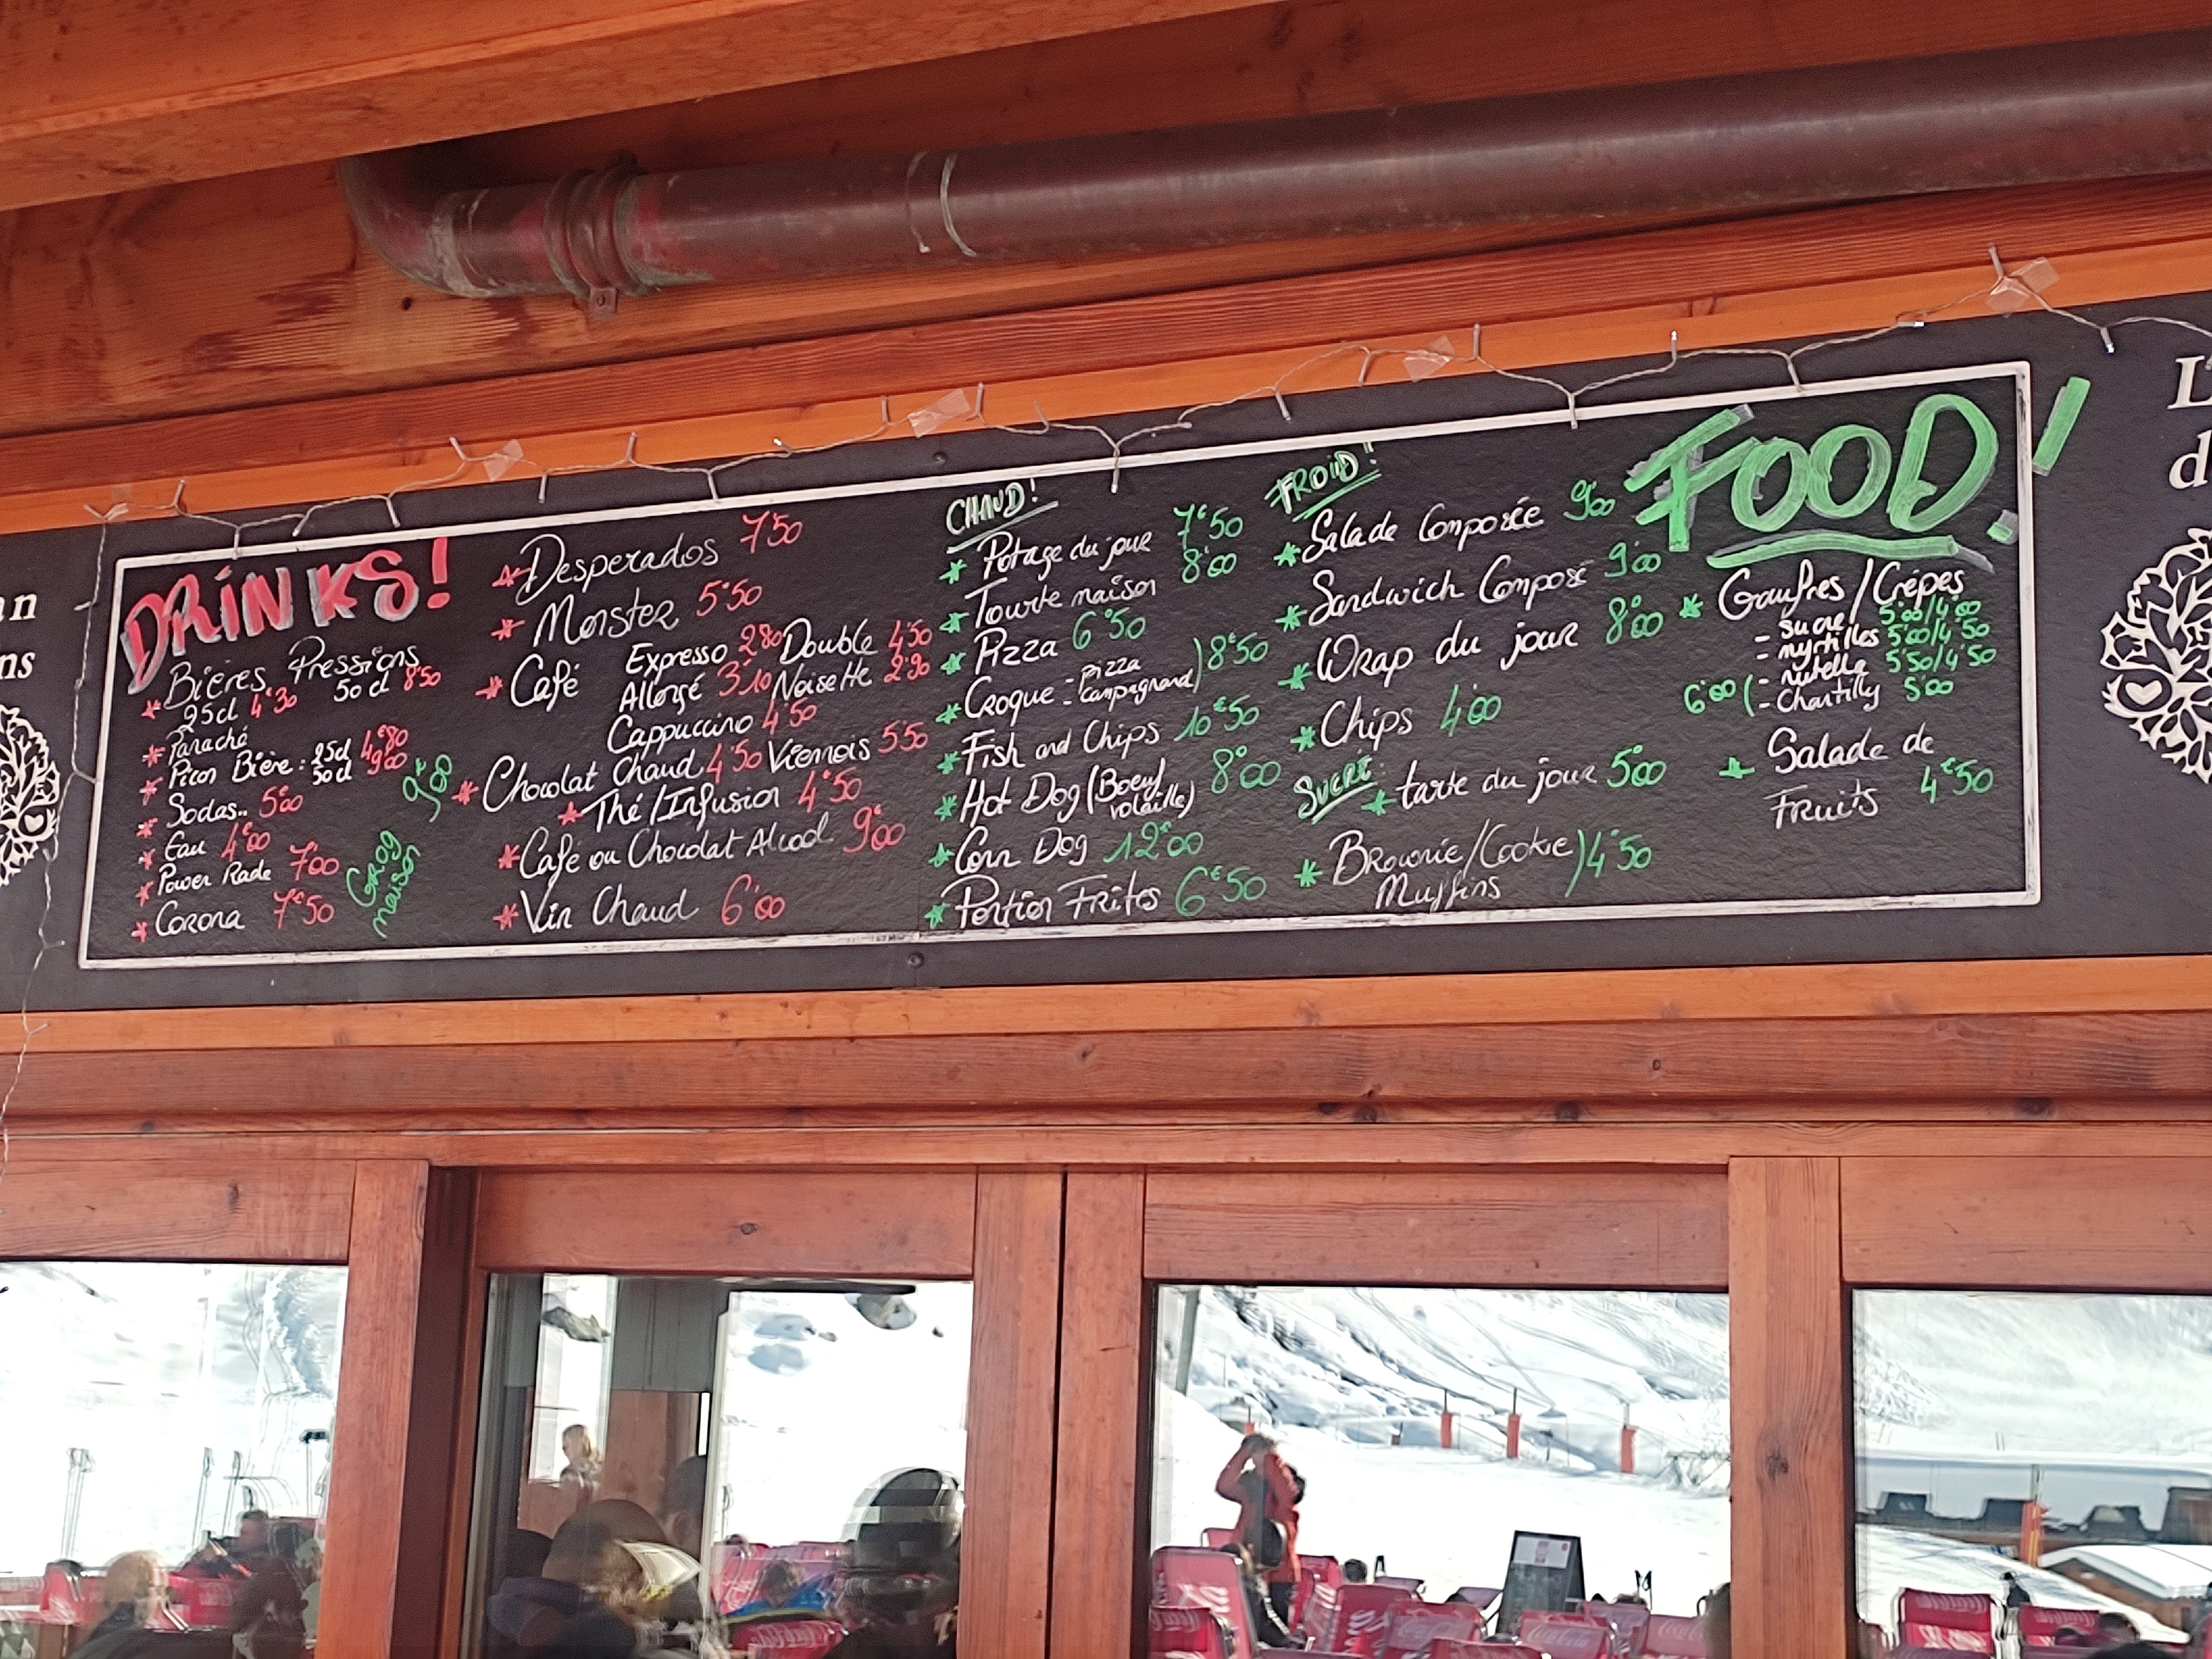 DRINKS!
* Bières Pressions
25cl 4€30 50cl 8€50
* Panaché
* Picon Bière : 25cl 4€80
50cl 9€00
* Sodas.. 5€00
* Eau 4€00
* Power Rade 7€00
* Corona 7€50
Grog maison 9€00
* Desperados 7€50
* Monster 5€50
* Café Expresso 2€80 Double 4€50
Allongé 3€10 Noisette 2€90
Cappuccino 4€50
* Chocolat Chaud 4€50 Viennois 5€50
* Thé/Infusion 4€50
* Café ou Chocolat Alcool 9€00
* Vin Chaud 6€00
CHAUD!
* Potage du jour 7€50
* Tourte maison 8€00
* Pizza 6€50
* Croque - pizza
- campagnard ) 8€50
* Fish and Chips 10€50
* Hot Dog (Boeuf
volaille) 8€00
* Corn Dog 12€00
* Portion Frites 6€50
FROID!
* Salade Composée 9€00
* Sandwich Composé 9€00
* Wrap du jour 8€00
* Chips 4€00
SUCRÉ
* tarte du jour 5€00
* Brownie/Cookie ) 4€50
Muffins
FOOD!
* Gaufres/Crêpes
- sucre 5€00/4€00
- myrtilles 5€00/4€50
- nutella 5€50/4€50
6€00 ( - Chantilly 5€00
* Salade de
Fruits 4€50